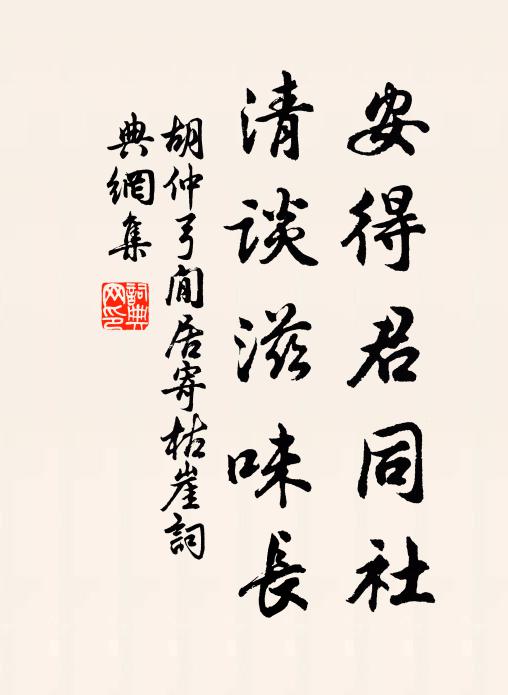 安得君同社
清談滋味長
胡仲弓閒居寄枯崖詞
典網集
詞典网印